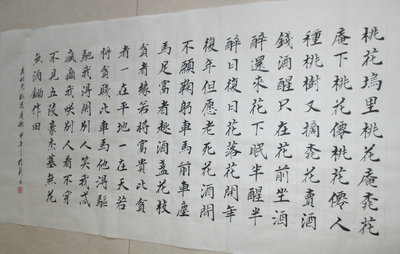 桃花塢里桃花庵桃花
庵下桃花僊桃花僊人
種桃樹又摘桃花賣酒
錢酒醒只在花前坐酒
醉還來花下眠半醒半
醉日復日花落花開年
復年但愿老死花酒間
不願鞠躬車馬前車塵
馬足富者趣酒盞花枝
貧者緣若將富貴比貧
者一在平地一在天若
將貧賤比車馬他得驅
馳我得閑別人笑我忒
瘋癲我咲別人看不穿
不見五陵豪杰墓無花
無酒鋤作田
桃花庵歌